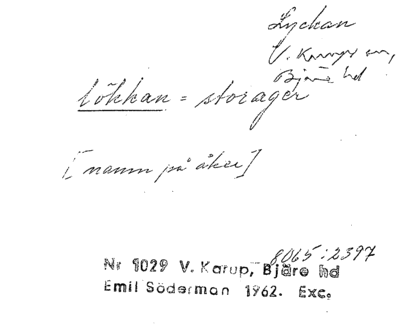 Lyckan
V. Karups sn,
Bjäre hd
lökkan = storager
[namn på åker]
8065:2397
Nr 1029 V. Karup, Bjäre hd
Emil Söderman 1962. Exc.